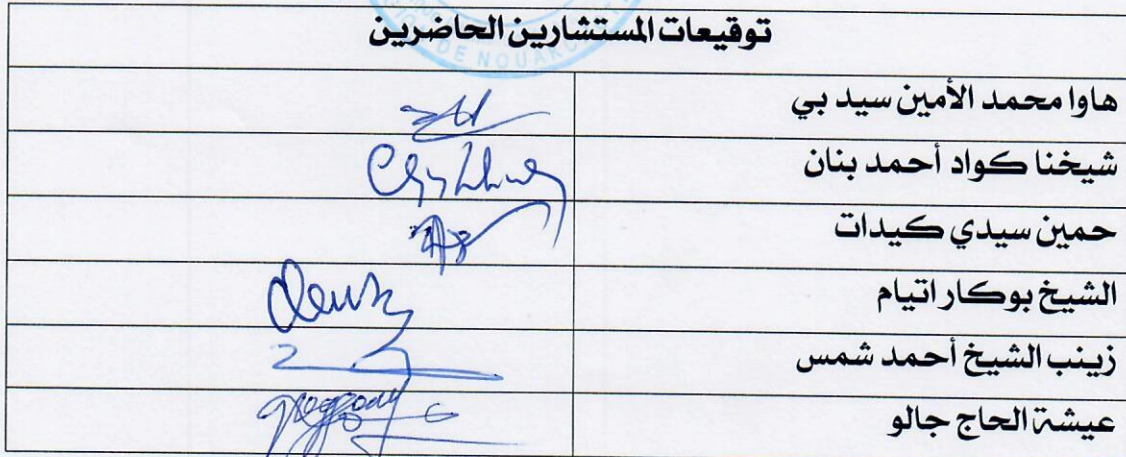 DE NOUAKC
توقيعات المستشارين الحاضرين
هاوا محمد الأمين سيد بي
شيخنا كواد أحمد بنان
حمين سيدي كيدات
الشيخ بوكار اتيام
زينب الشيخ أحمد شمس
عيشة الحاج جالو